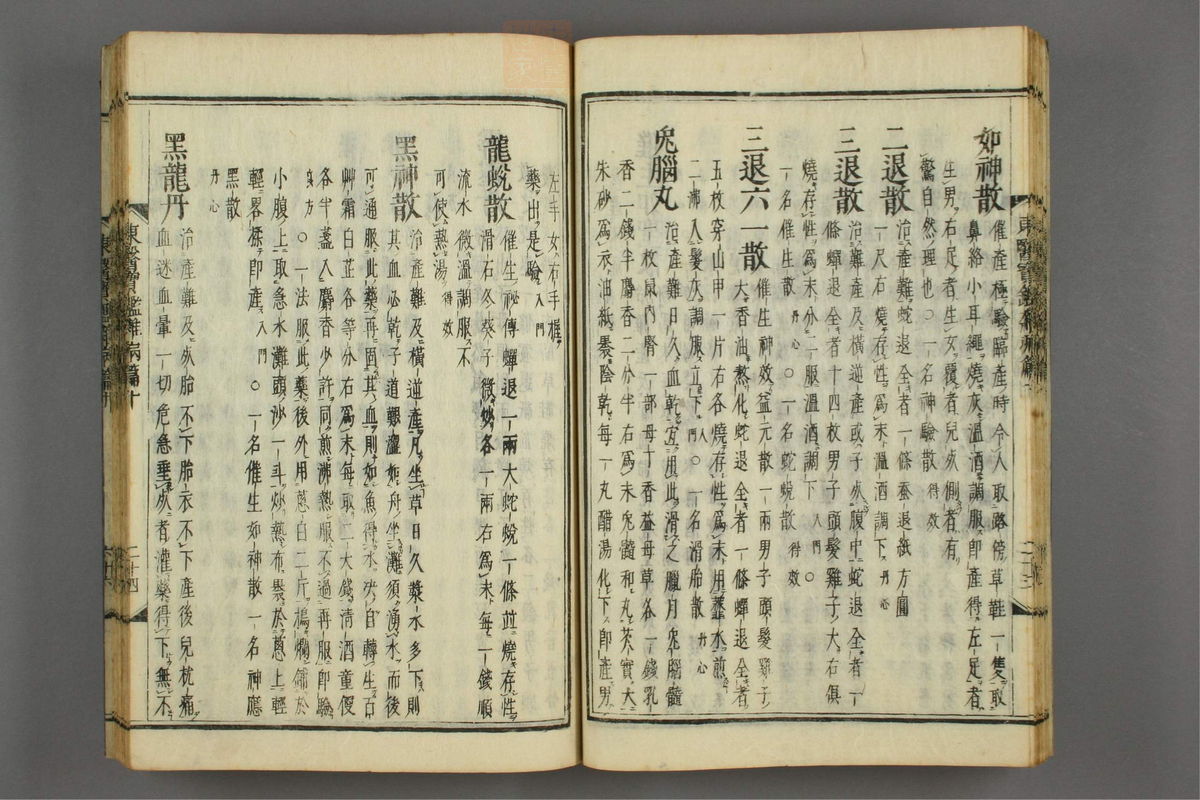 如神散催產極驗臨產時令人取路傍草鞋一隻取
鼻絡小耳繩燒灰溫酒調服即產得左足者
生男右足者生女覆者兒死側者有
驚自然理也○一名神驗散得效
二退散治產難蛇退全者一條蚕退紙方圓
一尺右燒存性爲末溫酒調下丹心
三退散治難產及橫逆產或子死腹中蛇退全者一
條蟬退全者十四枚男子頭髮雞子大右俱
燒存性爲末分二服溫酒調下入門○
一名催生散丹心○一名蛇蛻散得效
三退六一散催生神效益元散一兩男子頭髮雞子
大香油熬化蛇退全者一條蟬退全者
五枚穿山甲一片右各燒存性爲末用虀水煎
二沸入髮灰調服立下入門○一名滑胎散丹心
兎腦丸治產難日久血乾宜用此滑之臘月兎腦髓
一枚鼠內腎一部母丁香益母草各一錢乳
香二錢半麝香二分半右爲末兎髓和丸芡實大
朱砂爲衣油紙裹陰乾每一丸醋湯化下即產男
左手女右手握
藥出是驗入門
龍蛻散催生祕傳蟬退一兩大蛇蛻一條並燒存性
滑石冬葵子微炒各一兩右爲末每一錢順
流水微溫調服不
可使熱湯得效
黑神散治產難及橫逆產凡坐草日久漿水多下則
其血必乾子道艱澁如舟坐灘須湧水而後
可通服此藥再固其血則如魚得水決自轉生百
艸霜白芷各等分右爲末每取二大錢淸酒童便
各半盞入麝香少許同煎沸熱服不過再服即驗
○一法服此藥後外用蔥白二斤搗爛鋪於
小腹上取急水灘頭沙一斗炒熱布裹於蔥上輕
輕畧揉即產入門○一名催生如神散一名神應
黑散
丹心
黑龍丹治產難及死胎不下胎衣不下產後兒枕痛
血迷血暈一切危急垂死者灌藥得下無不
東醫寶鑑雜病篇十
二十四